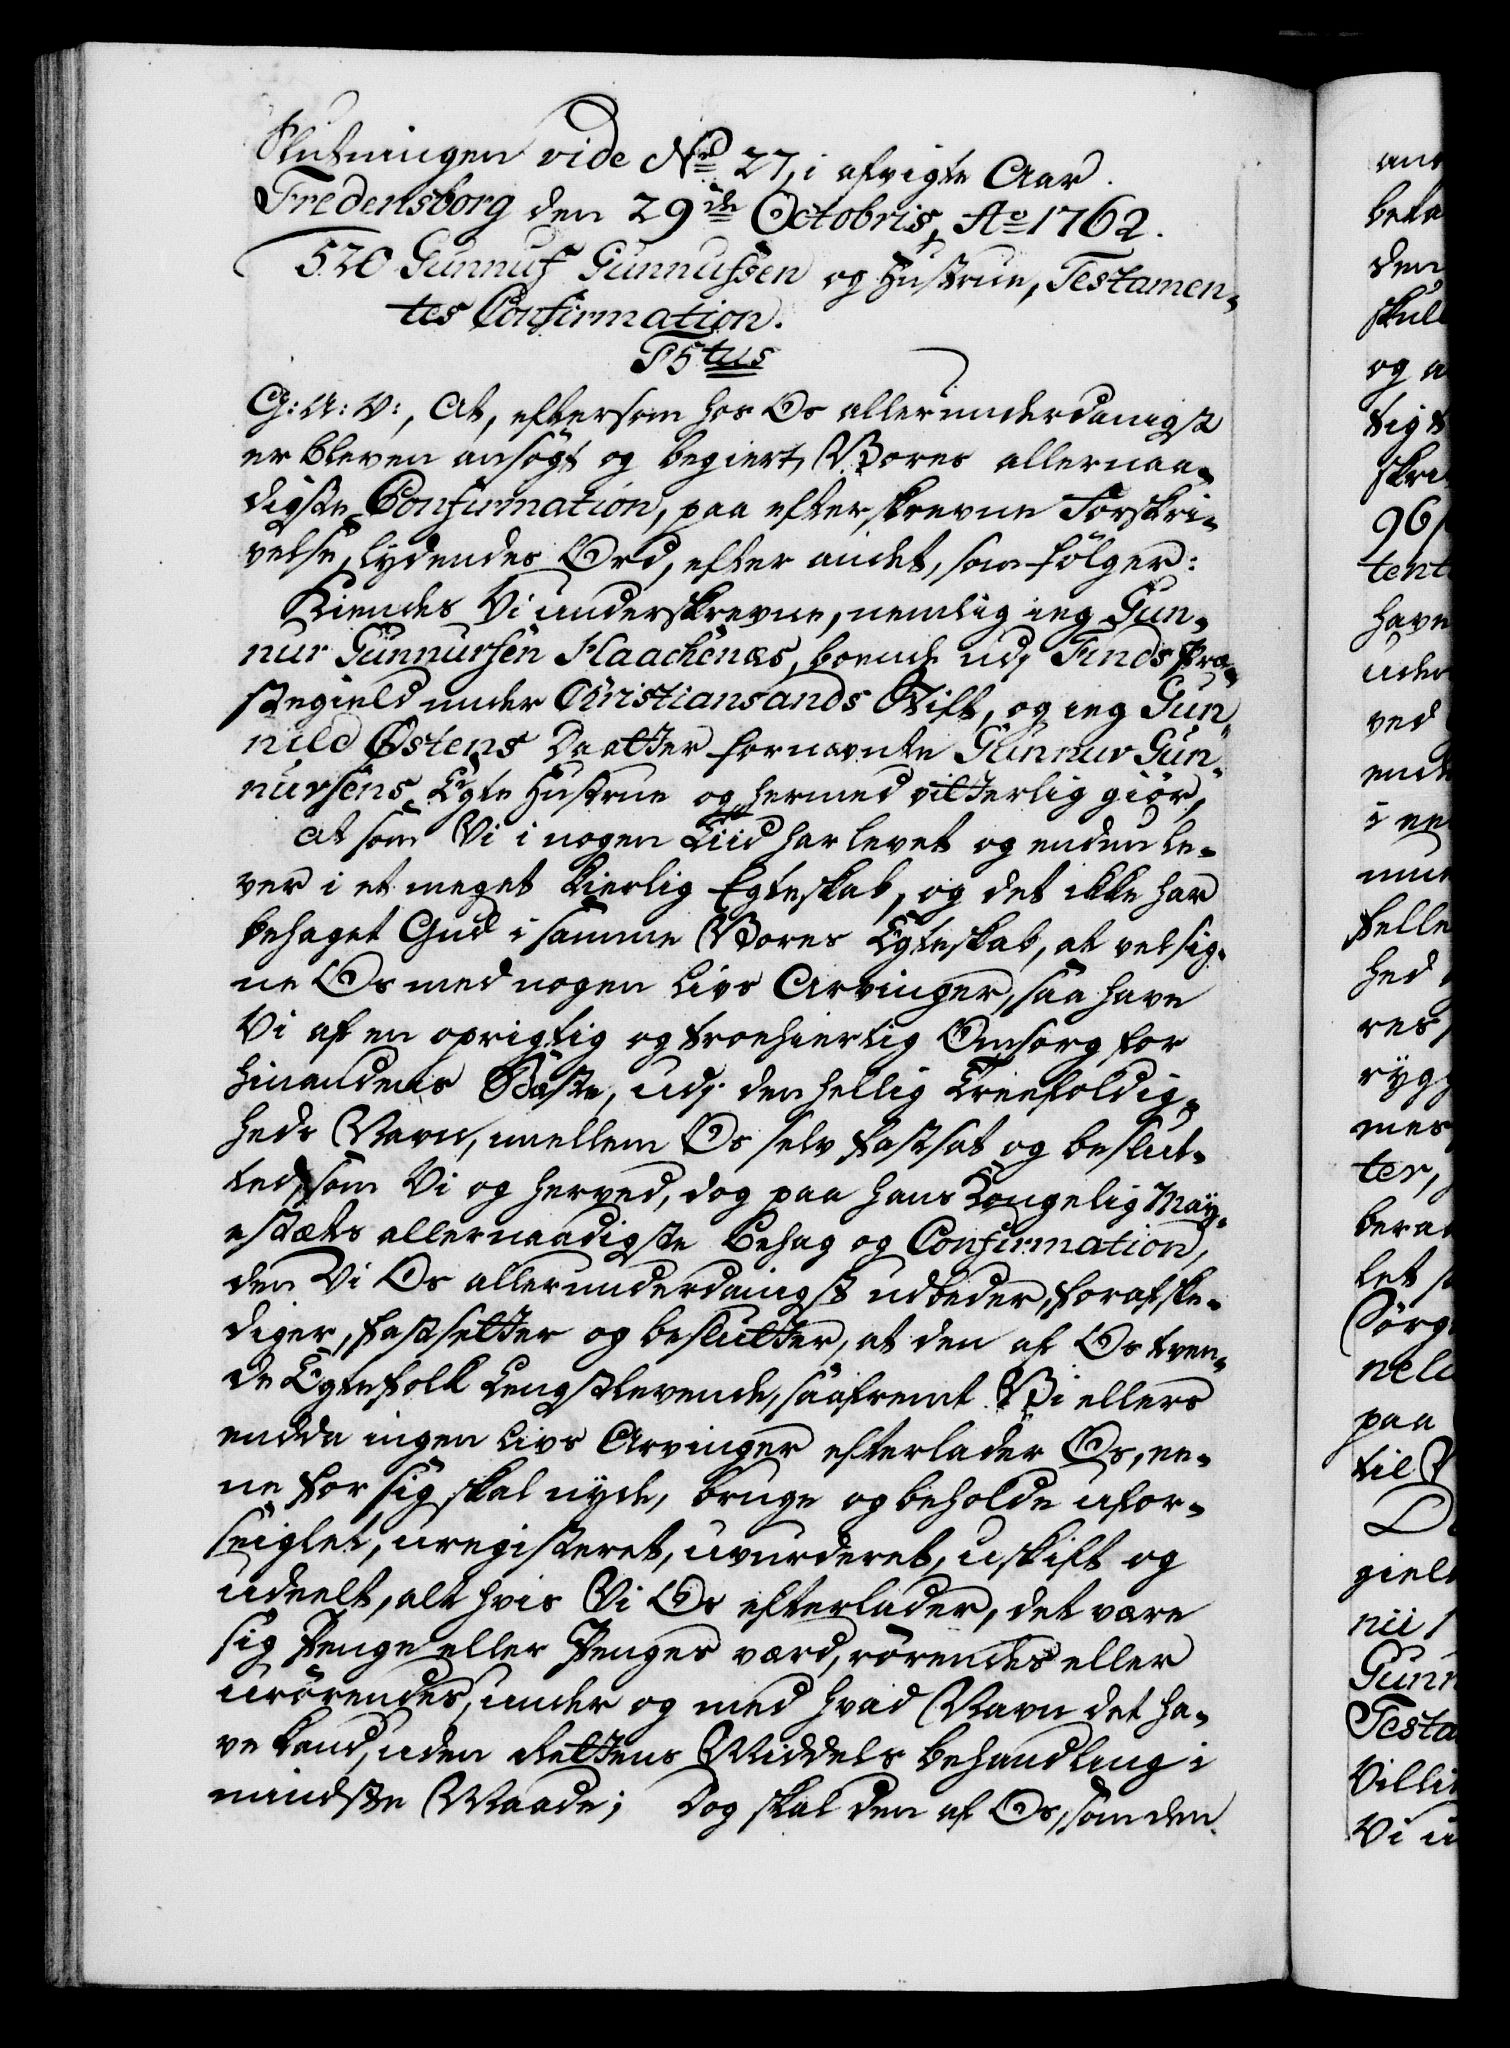 Slutningen vide No 27, i afvigte Aar.
Fredensborg den 29de Octobris, Ao 1762.
520 Gunnuf Gunnufsen og Hustrue, Testamen-
tes Confirmation.
P5tus
G: A: V:, At, eftersom hos Os allerunderdanigst
er bleven ansögt og begiert, Vores allernaa-
digste Confirmation, paa efterskrevne Forskri-
velse, lydendes Ord, efter andet, som fölger:
Kiendes Vi underskrevne, nemlig ieg Gun-
nur Gunnursen Haachenæs, boende udj Finds Præ-
stegield under Christiansands Stift, og ieg Gun-
nild Østens Daatter fornævnte Gunnur Gun-
nursens Egte Hustrue og hermed vitterlig giör,
at som Vi i nogen Tiid har levet og endnu le-
ver i et meget kierlig Egteskab, og det ikke har
behaget Gud i samme Vores Egteskab, at velsig-
ne Os med nogen Livs Arvinger, saa have
Vi af en oprigtig og troehiertig Omsorg for
hinandens Bæste, udj den hellig Treefoldig-
heds Navn, mellem Os selv fastsat og beslut-
ted, som Vi og herved, dog paa hans Kongelig May-
estæts allernaadigste Behag og Confirmation,
den Vi Os allerunderdanigst udbeder, forafske-
diger, fastsetter og beslutter, at den af Os tven-
de Egtefolk Lengstlevende, saafremt Vi ellers
endda ingen Livs Arvinger efterlader Os, ee-
ne for sig skal nyde, bruge og beholde ufor-
seiglet, uregisteret, uvurderet, uskift og
udeelt, alt hvis Vi Os efterlader, det være
sig Penge eller Penges værd, rörendes eller
urörendes, under og med hvad Navn det ha-
ve kand, uden Rettens Middels behandling i
mindste Maade; Dog skal den af Os, som den